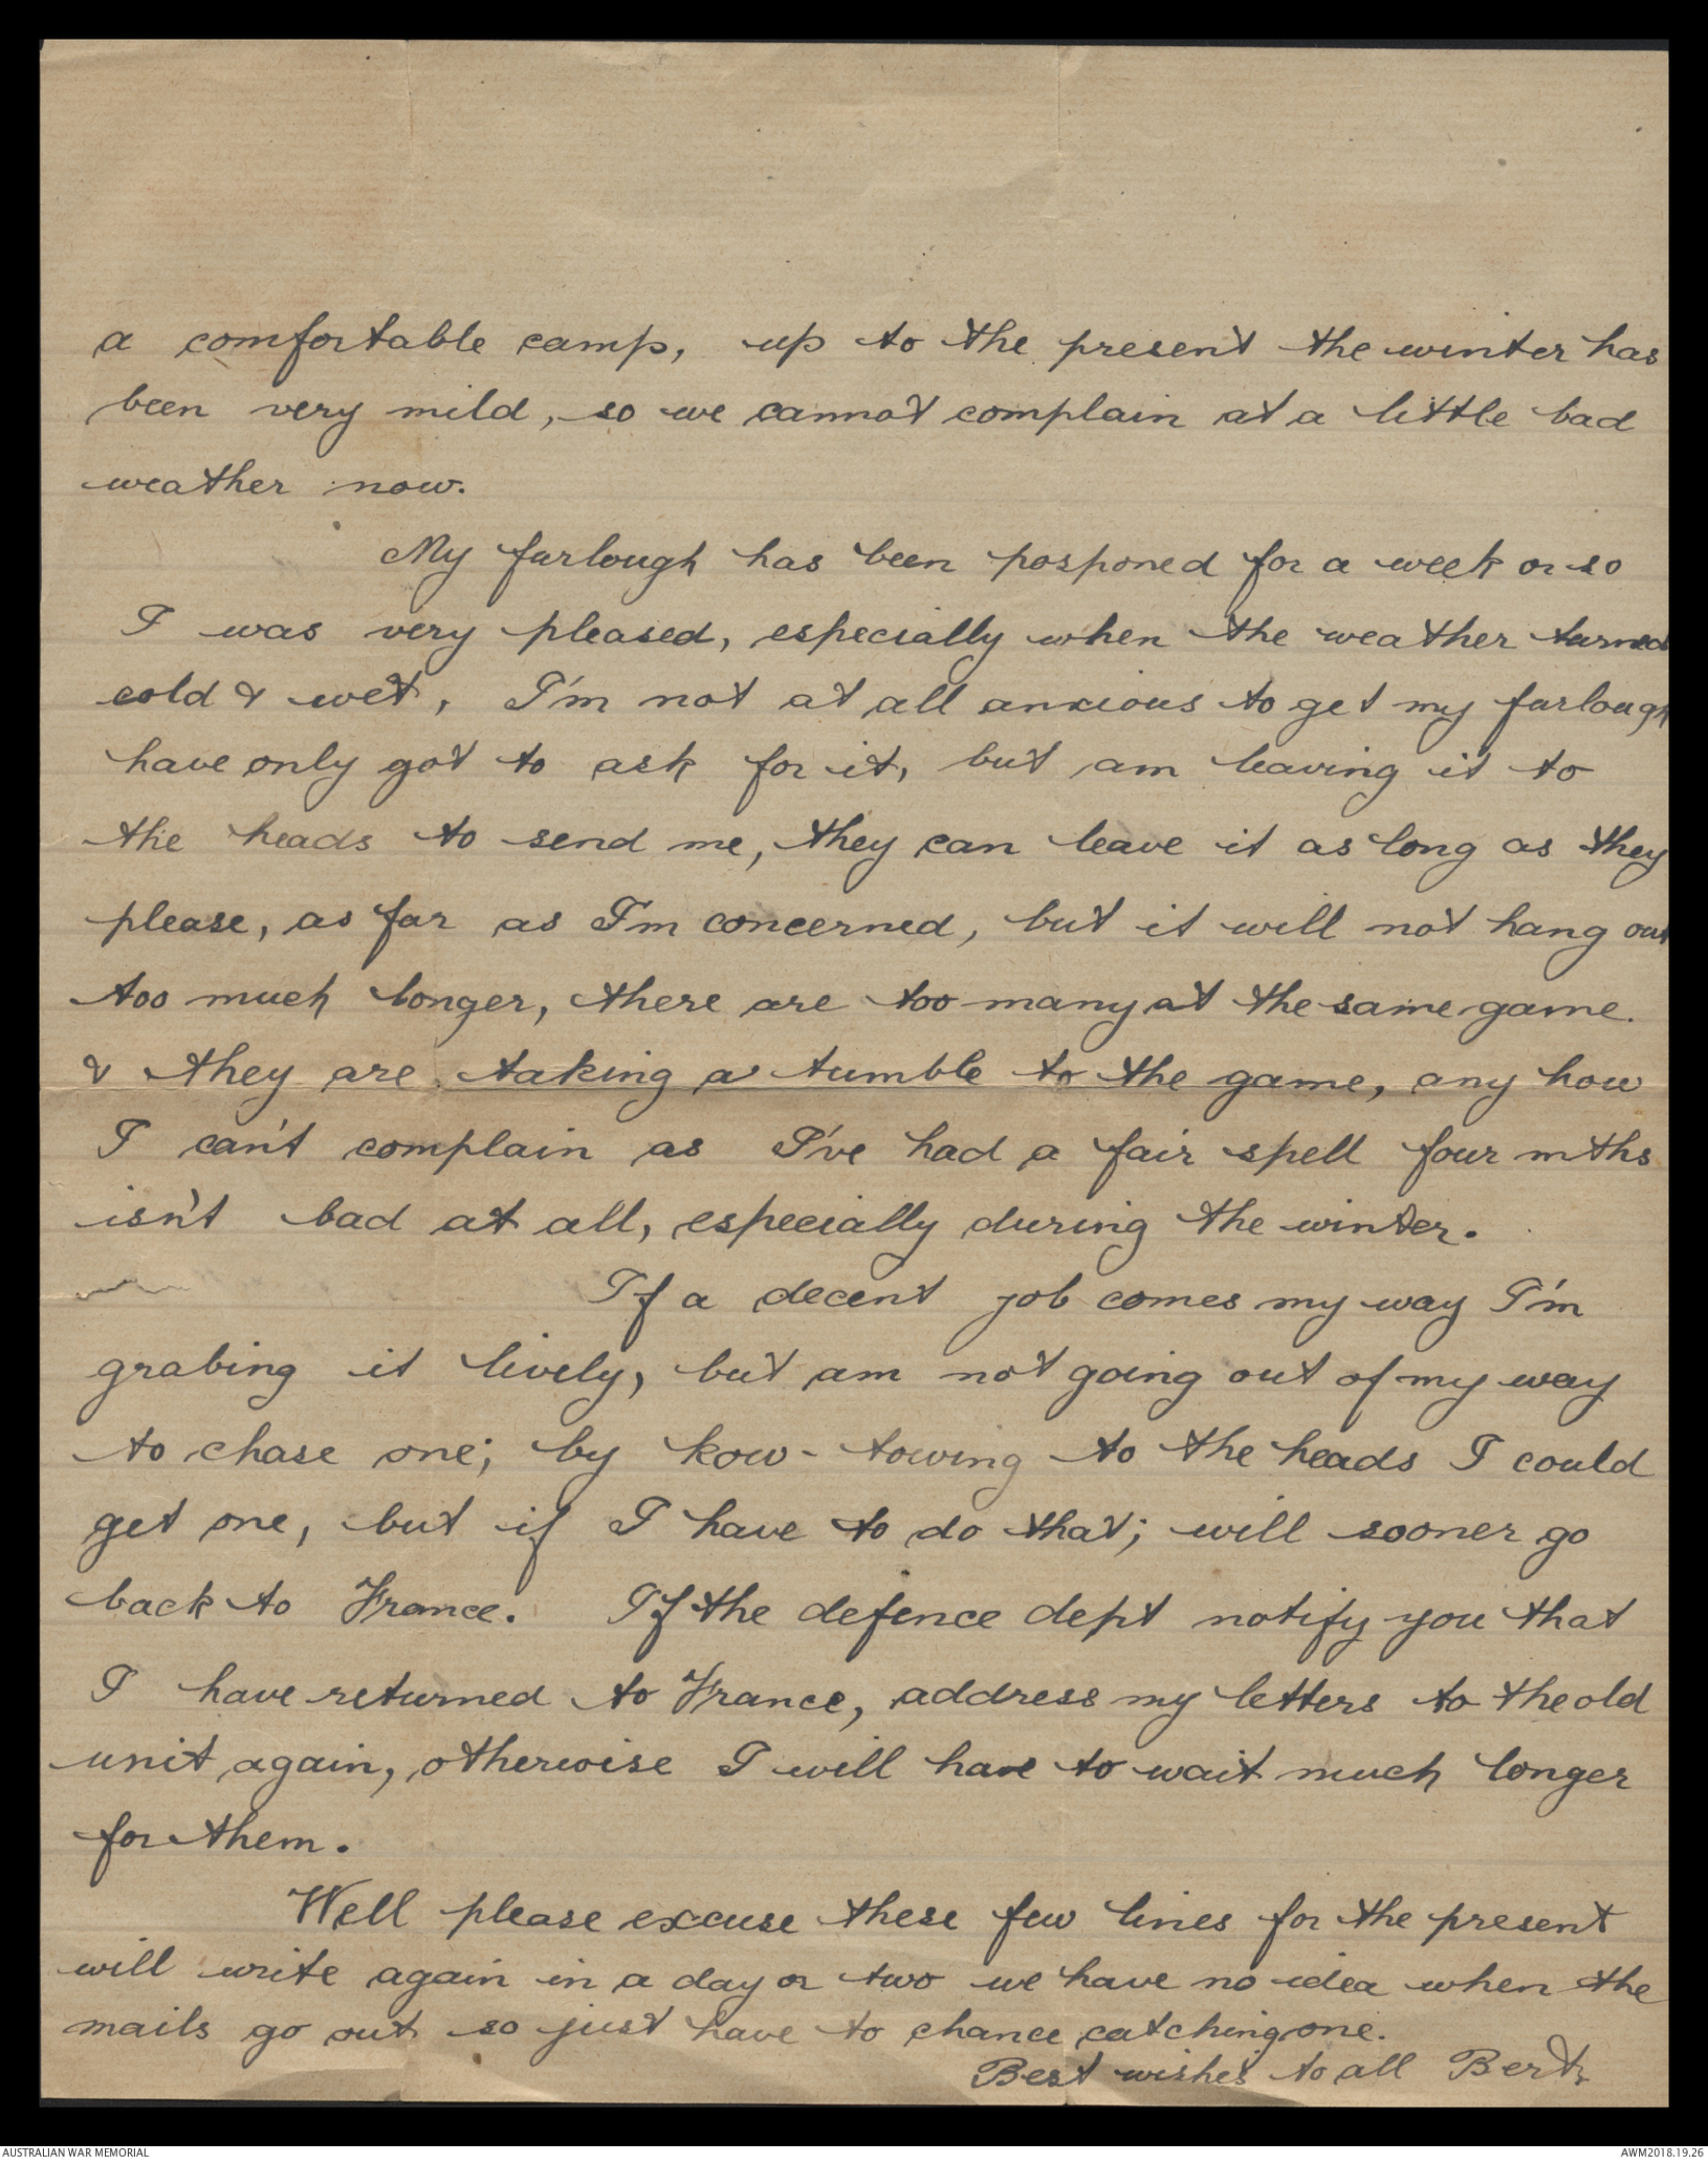 a comfortable camp, up to the present the winter has
been very mild, so we cannot complain at a little bad
weather now.
My furlough has been posponed for a week or so
I was very pleased, especially when the weather turned
cold & wet, I'm not at all anxious to get my furlough
have only got to ask for it, but am leaving it to
the heads to send me, they can leave it as long as they
please, as far as I'm concerned, but it will not hang out
too much longer, there are too many at the same game.
& they are taking a tumble to the game, any how
I can't complain as I've had a fair spell four mths
isn't bad at all, especially during the winter.
If a decent job comes my way I'm
grabing it lively, but am not going out of my way
to chase one; by kow-towing to the heads I could
get one, but if I have to do that; will sooner go
back to France. If the defence dept notify you that
I have returned to France, address my letters to the old
unit again, otherwise I will have to wait much longer
for them.
Well please excuse these few lines for the present
will write again in a day or two we have no idea when the
mails go out so just have to chance catching one.
Best wishes to all Bert
AUSTRALIAN WAR MEMORIAL
AWM2018.19.26